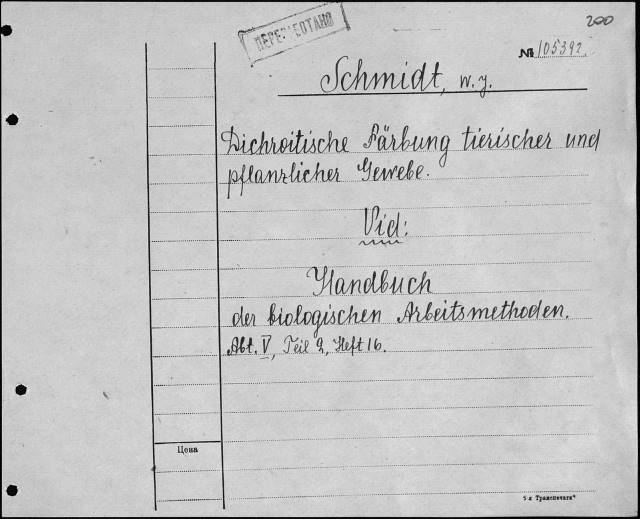 200
ПЕРЕУЧТЕНО
№ 105392.
Schmidt, W. J.
Dichroitische Färbung tierischer und
pflanzlicher Gewebe.
Vid:
Handbuch
der biologischen Arbeitsmethoden.
Abt. V, Teil 2, Heft 16.
Цена
5-я Транспечать